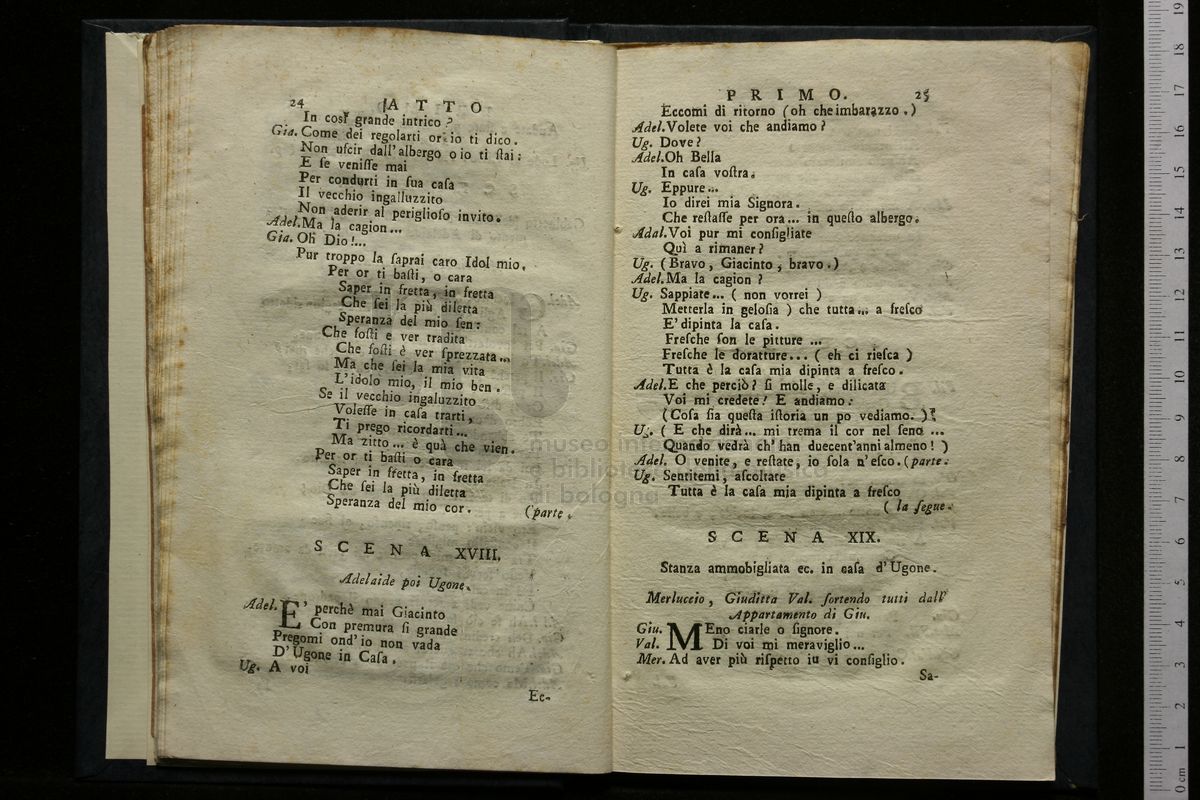 24 ATTO
In cosī grande intrico?
Gia. Come dei regolarti or io ti dico.
Non uſcir dall'albergo o io ti ſtai:
E ſe veniſſe mai
Per condurti in ſua caſa
Il vecchio ingalluzzito
Non aderir al periglioſo invito.
Adel. Ma la cagion...
Gia. Oh Dio!...
Pur troppo la ſaprai caro Idol mio.
Per or ti baſti, o cara
Saper in fretta, in fretta
Che ſei la più diletta
Speranza del mio ſen:
Che foſti e ver tradita
Che foſti è ver ſprezzata...
Ma che ſei la mia vita
L'idolo mio, il mio ben.
Se il vecchio ingaluzzito
Voleſſe in caſa trarti,
Ti prego ricordarti...
Ma zitto... è quà che vien.
Per or ti baſti o cara
Saper in fretta, in fretta
Che ſei la più diletta
Speranza del mio cor. (parte.
SCENA XVIII.
Adelaide poi Ugone.
Adel. E' perchè mai Giacinto
Con premura ſi grande
Pregomi ond'io non vada
D'Ugone in Caſa.
Ug. A voi
Ec-
PRIMO. 25
Eccomi di ritorno (oh che imbarazzo.)
Adel. Volete voi che andiamo?
Ug. Dove?
Adel. Oh Bella
In caſa voſtra.
Ug. Eppure...
Io direi mia Signora.
Che reſtaſſe per ora... in queſto albergo.
Adal. Voi pur mi conſigliate
Quì a rimaner?
Ug. (Bravo, Giacinto, bravo.)
Adel. Ma la cagion?
Ug. Sappiate... (non vorrei)
Metterla in geloſia) che tutta... a freſco
E' dipinta la caſa.
Freſche ſon le pitture...
Freſche le doratture... (eh ci rieſca)
Tutta è la caſa mia dipinta a freſco.
Adel. E che perciò? ſi molle, e dilicata
Voi mi credete! E andiamo:
(Coſa ſia queſta iſtoria un po vediamo.)
Ug. (E che dirà... mi trema il cor nel ſeno...
Quando vedrà ch'han duecent'anni almeno!)
Adel. O venite, e reſtate, io ſola n'eſco. (parte.
Ug. Sentitemi, aſcoltate
Tutta è la caſa mia dipinta a freſco
(la ſegue.
SCENA XIX.
Stanza ammobigliata ec. in caſa d'Ugone.
Merluccio, Giuditta Val. ſortendo tutti dall'
Appartamento di Giu.
Giu. MEno ciarle o ſignore.
Val. Di voi mi meraviglio...
Mer. Ad aver più riſpetto iu vi conſiglio.
Sa-
di bologna